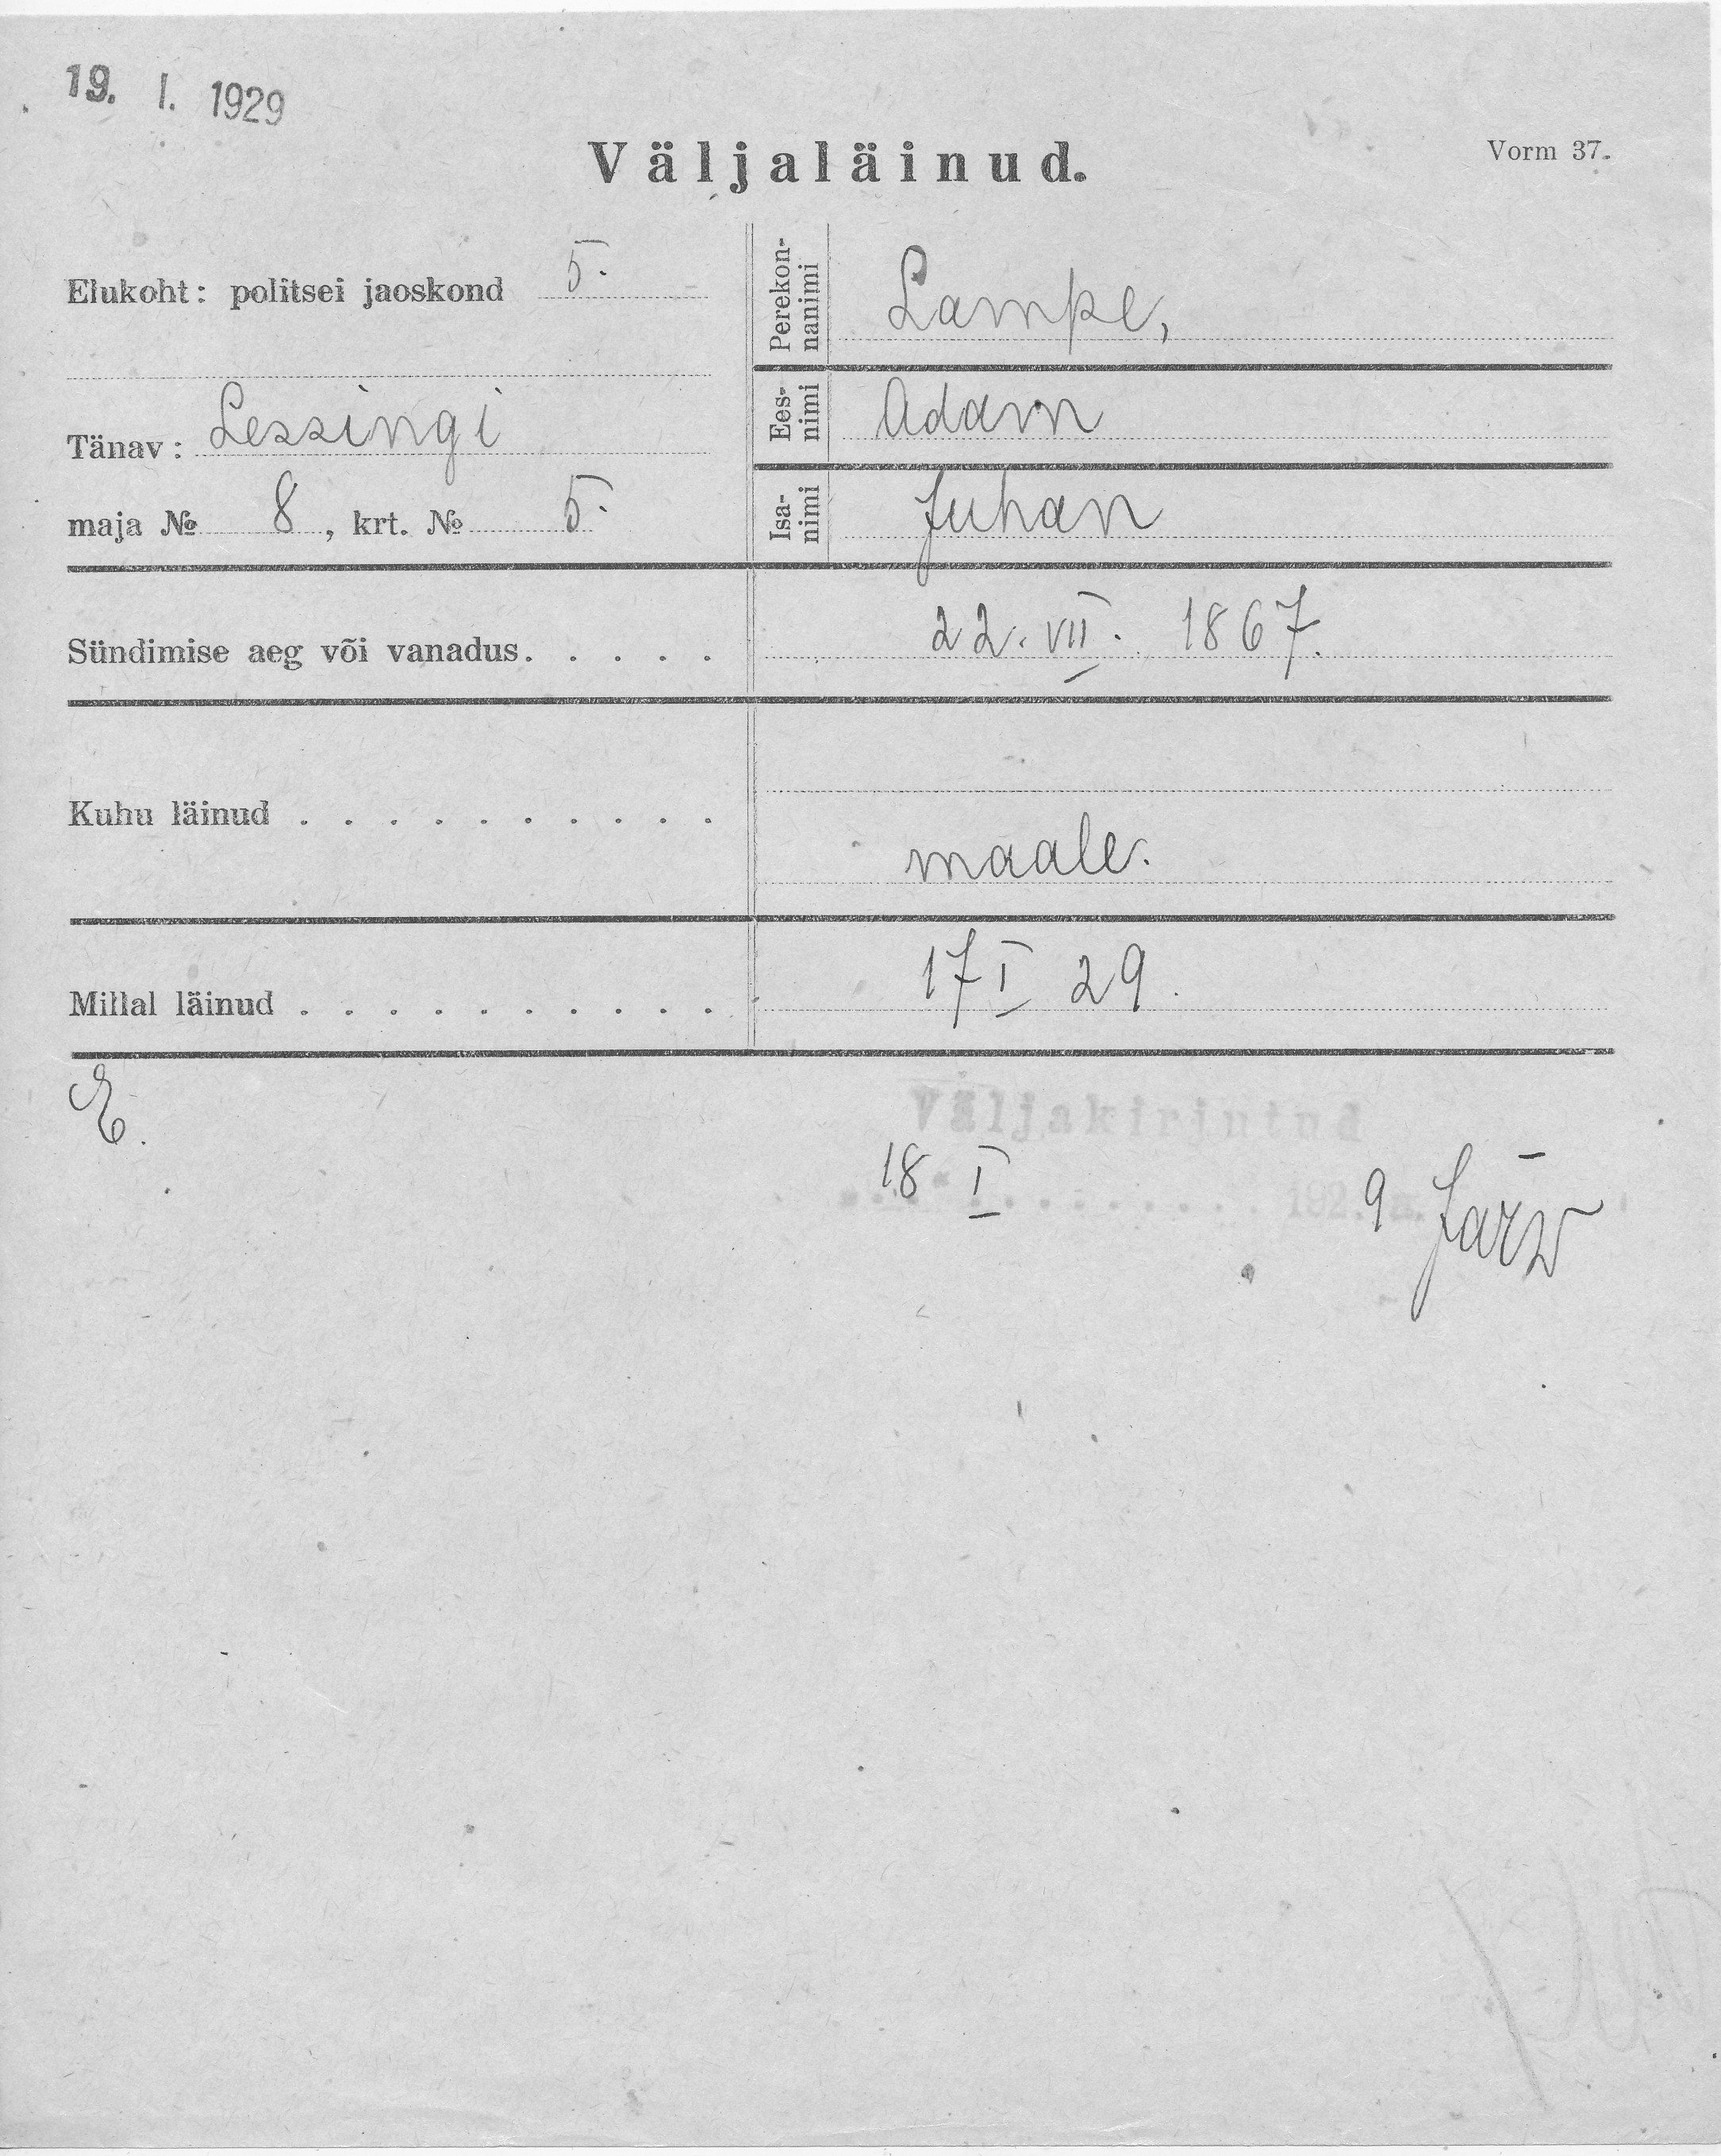 19. I. 1929
Väljaläinud.
Vorm 37.
Elukoht: politsei jaoskond 5.
Tänav: Lessingi
maja № 8, krt. № 5.
Perekon-
nanimi
Lampe,
Ees-
nimi
Adam
Isa-
nimi
Juhan
Sündimise aeg või vanadus. . . . . 22. VII. 1867.
Kuhu läinud . . . . . . . . . .
maale.
Millal läinud . . . . . . . . . . 17 I 29.
E.
Väljakirjutud
18 I 192 9 Järv